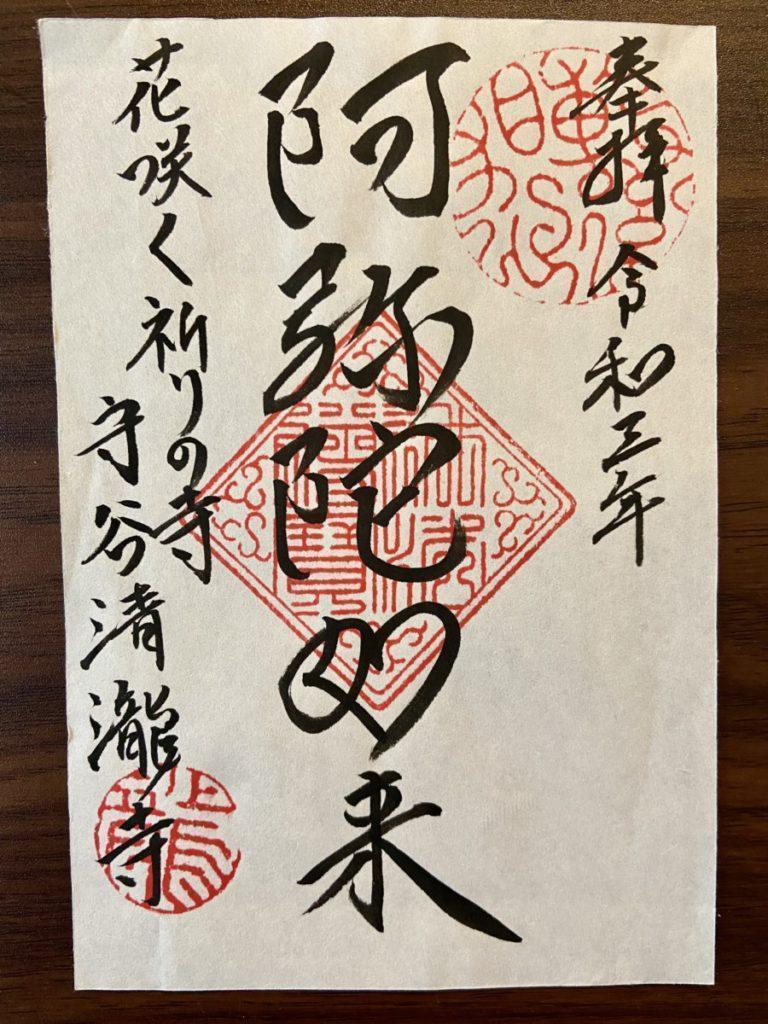 奉拝 令和三年
阿弥陀如来
花咲く祈りの寺
守谷清瀧寺